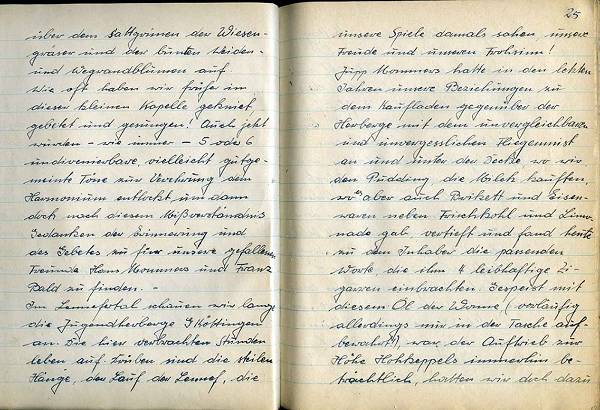 über dem Sattgrünen der Wiesen-
gräser und der bunten Heiden-
und Wegrandblumen auf.
Wie oft haben wir früher in
dieser kleinen Kapelle gekniet,
gebetet und gesungen! Auch jetzt
wurden - wie immer - 5 oder 6
undivinierbare, vielleicht gutge-
meinte Töne zur Verehrung dem
Harmonium entlockt um dann
doch nach diesem Mißverständnis
Gedanken der Erinnerung und
des Gebetes zu für unsere gefallenen
Freunde Hans Mommers und Franz
Bald zu finden. -
Im Lennefertal schauen wir lange
die Jugendherberge
an. Die hier verbrachten Stunden
leben auf. Drüben sind die steilen
Hänge, der Lauf der Lennef, die
25
unsere Spiele damals sahen, unsere
Freude und unseren Frohsinn!
Jupp Mommers hatte in den letzten
Jahren unsere Beziehungen zu
dem Kaufladen gegenüber der
Herberge mit dem unvergleichbaren
und unvergesslichen Fliegennist
an und unter der Decke wo wir
den Pudding die Milch kauften,
wo es aber auch Brikett und Eisen-
waren neben Frischkohl und Limo-
nade gab vertieft und fand heute
zu dem Inhaber die passenden
Worte die ihm 4 leibhaftige Zi-
garren einbrachten. Gespeist mit
diesem Öl der Wonne (vorläufig
allerdings nur in der Tasche auf-
bewahrt), war der Auftrieb zur
Höhe Hohkeppels immerhin be-
trächtlich, hatten wir doch dazu